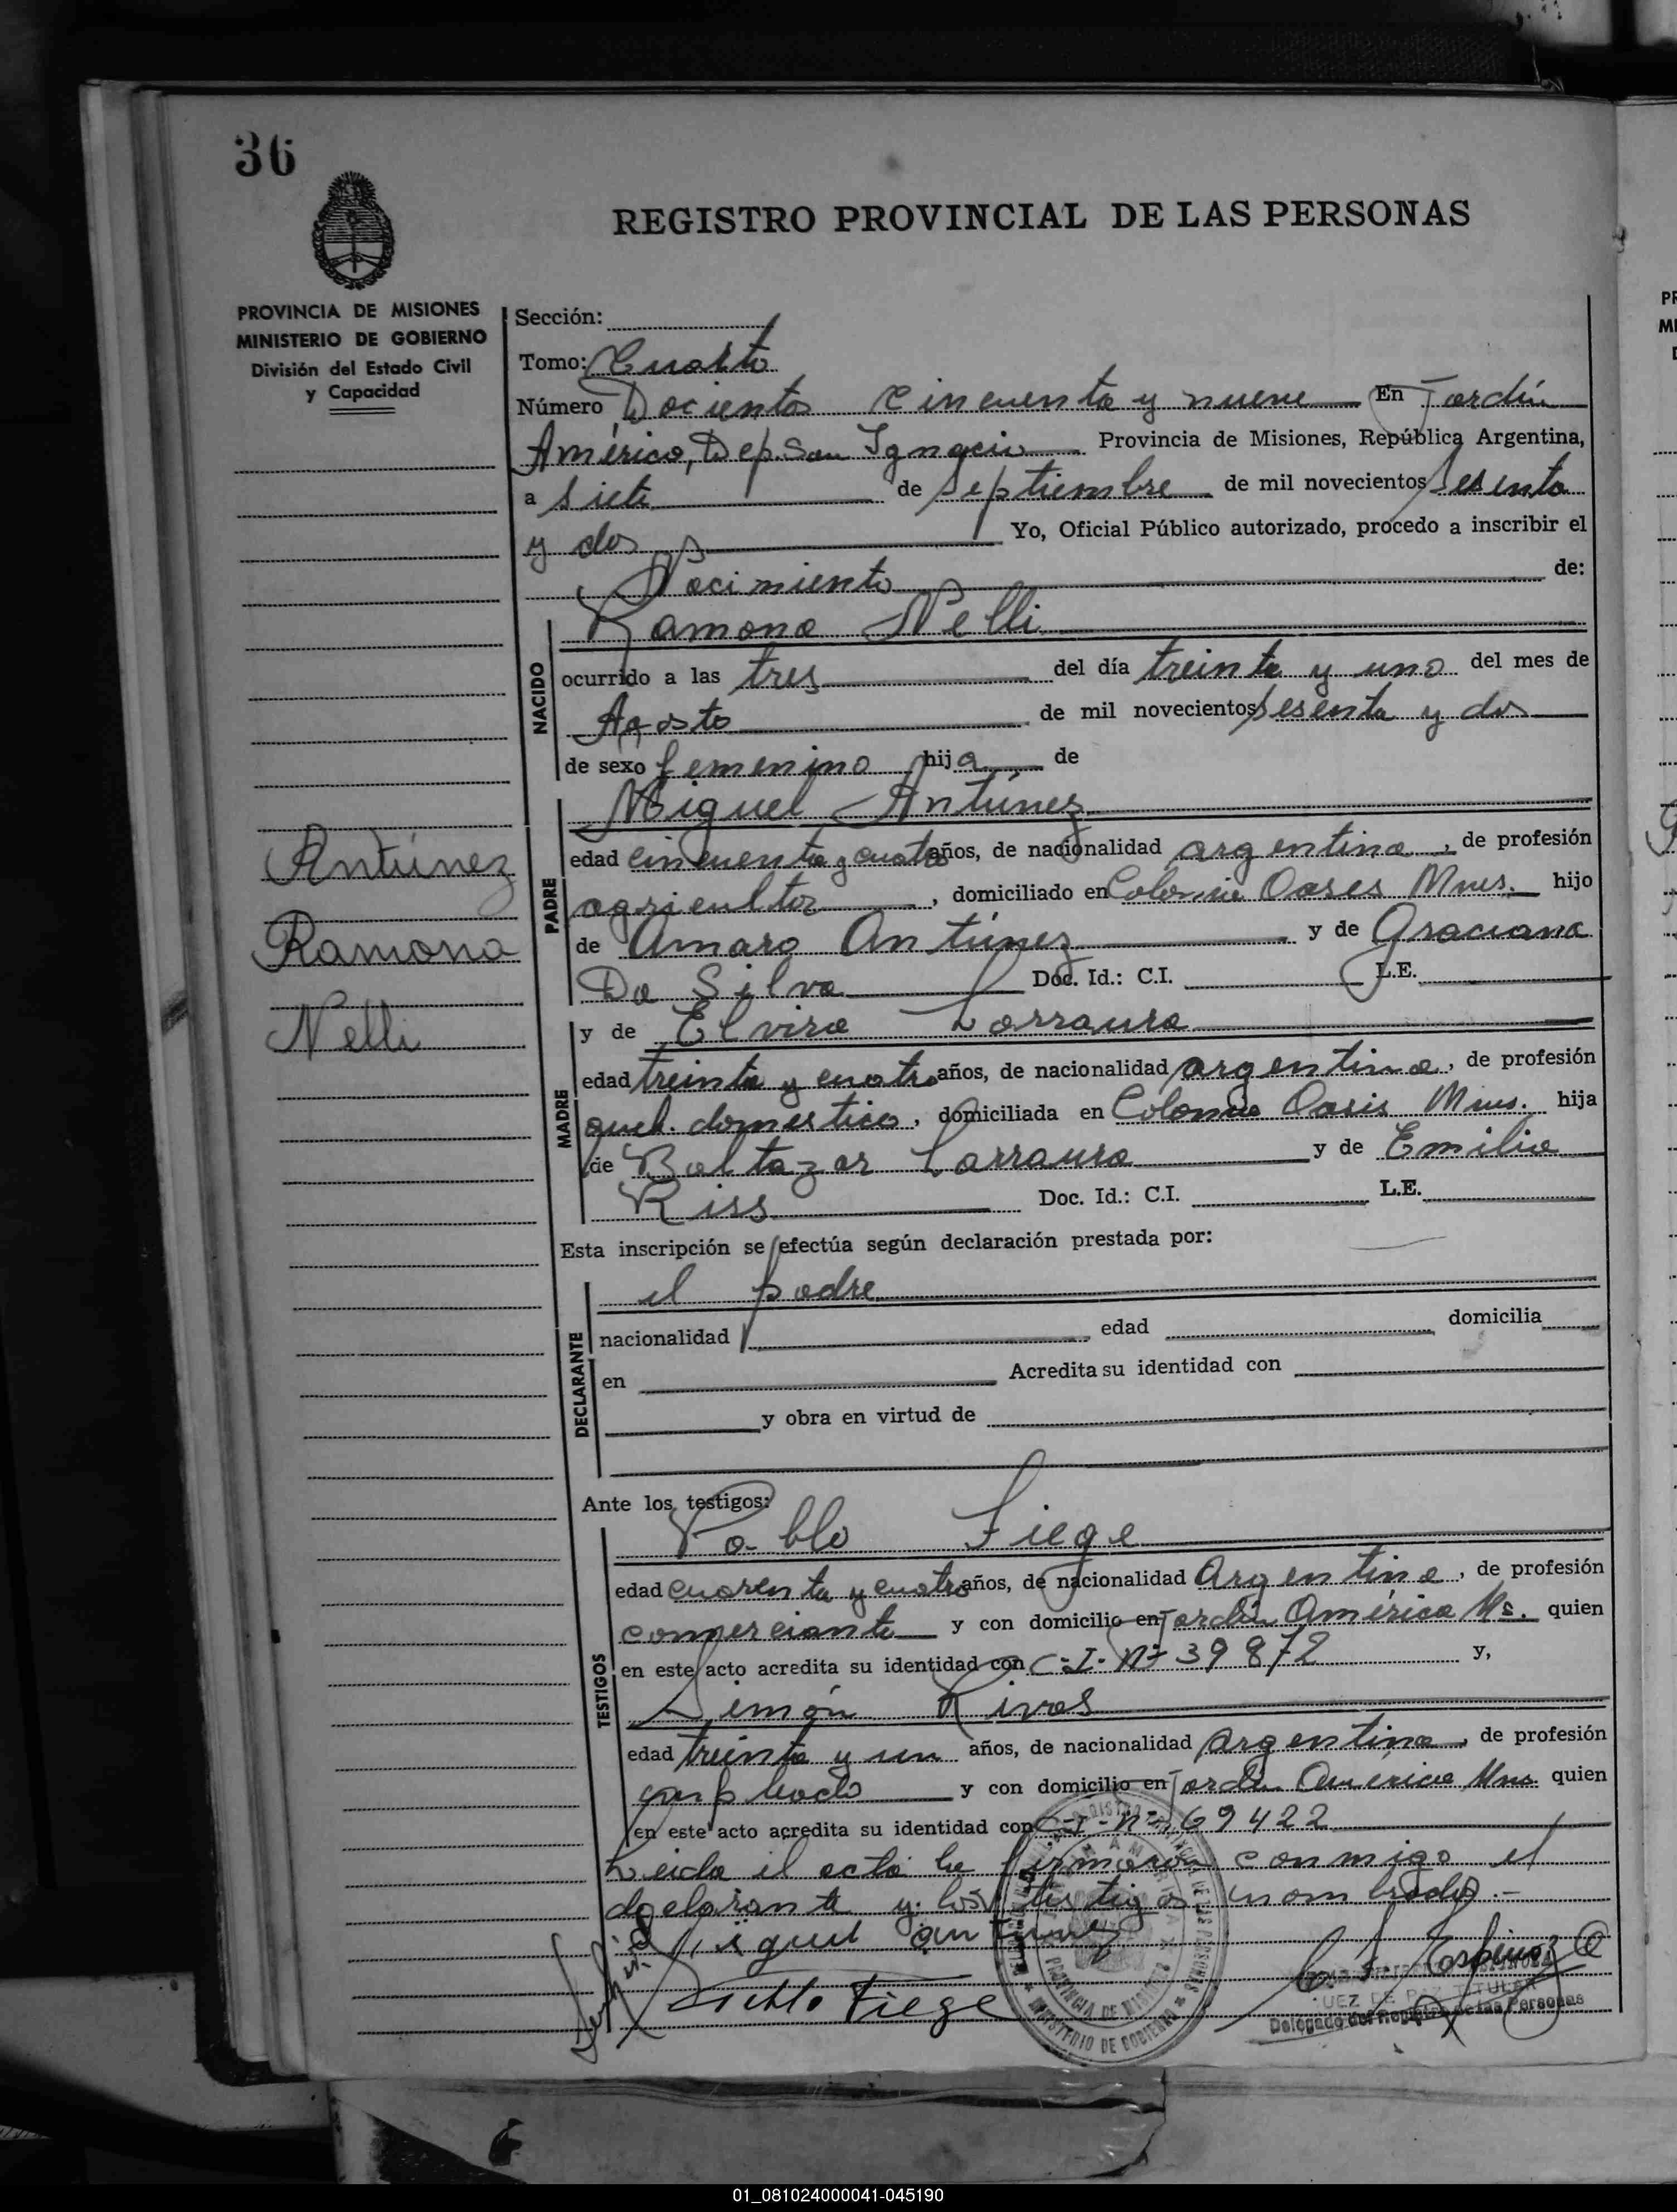 36
REGISTRO PROVINCIAL DE LAS PERSONAS
PROVINCIA DE MISIONES
MINISTERIO DE GOBIERNO
División del Estado Civil
y Capacidad
Sección:
Tomo: Cuarto
Número Docientos cincuenta y nueve En Jardín
América, Dep. San Ignacio Provincia de Misiones, República Argentina,
a siete de septiembre de mil novecientos sesenta
y dos Yo, Oficial Público autorizado, procedo a inscribir el
Nacimiento de:
NACIDO
Ramona Nelli
ocurrido a las tres del día treinta y uno del mes de
Agosto de mil novecientos sesenta y dos
de sexo femenino hija de
PADRE
Miguel Antúnez
edad cincuenta y cuatro años, de nacionalidad argentina, de profesión
agricultor, domiciliado en Colonia Oases Mnes. hijo
de Amaro Antúnez y de Graciana
Da Silva Doc. Id.: C.I. L.E.
Antúnez
Ramona
Nelli
MADRE
y de Elvira Larraura
edad treinta y cuatro años, de nacionalidad argentina, de profesión
queh. domestico, domiciliada en Colonia Oasis Mnes. hija
de Baltazar Larraura y de Emilia
Riss Doc. Id.: C.I. L.E.
Esta inscripción se efectúa según declaración prestada por:
DECLARANTE
el padre
nacionalidad edad domicilia
en Acredita su identidad con
y obra en virtud de
Ante los testigos:
TESTIGOS
Pablo Fiege
edad cuarenta y cuatro años, de nacionalidad Argentina, de profesión
comerciante y con domicilio en Jardín América Ms. quien
en este acto acredita su identidad con C.I. Nº 39872 y,
Simón Rivas
edad treinta y un años, de nacionalidad argentina, de profesión
empleado y con domicilio en Jardín América Mns. quien
en este acto acredita su identidad con C.I. Nº 69422
Leida el acta la firmaron conmigo el
declarante y los testigos nombrados.-
Miguel Antunez
Pablo Fiege
Espinoza
JUEZ DE PAZ TITULAR
Delegado del Registro de las Personas
PROVINCIA DE MISIONES
MINISTERIO DE GOBIERNO
01_081024000041-045190